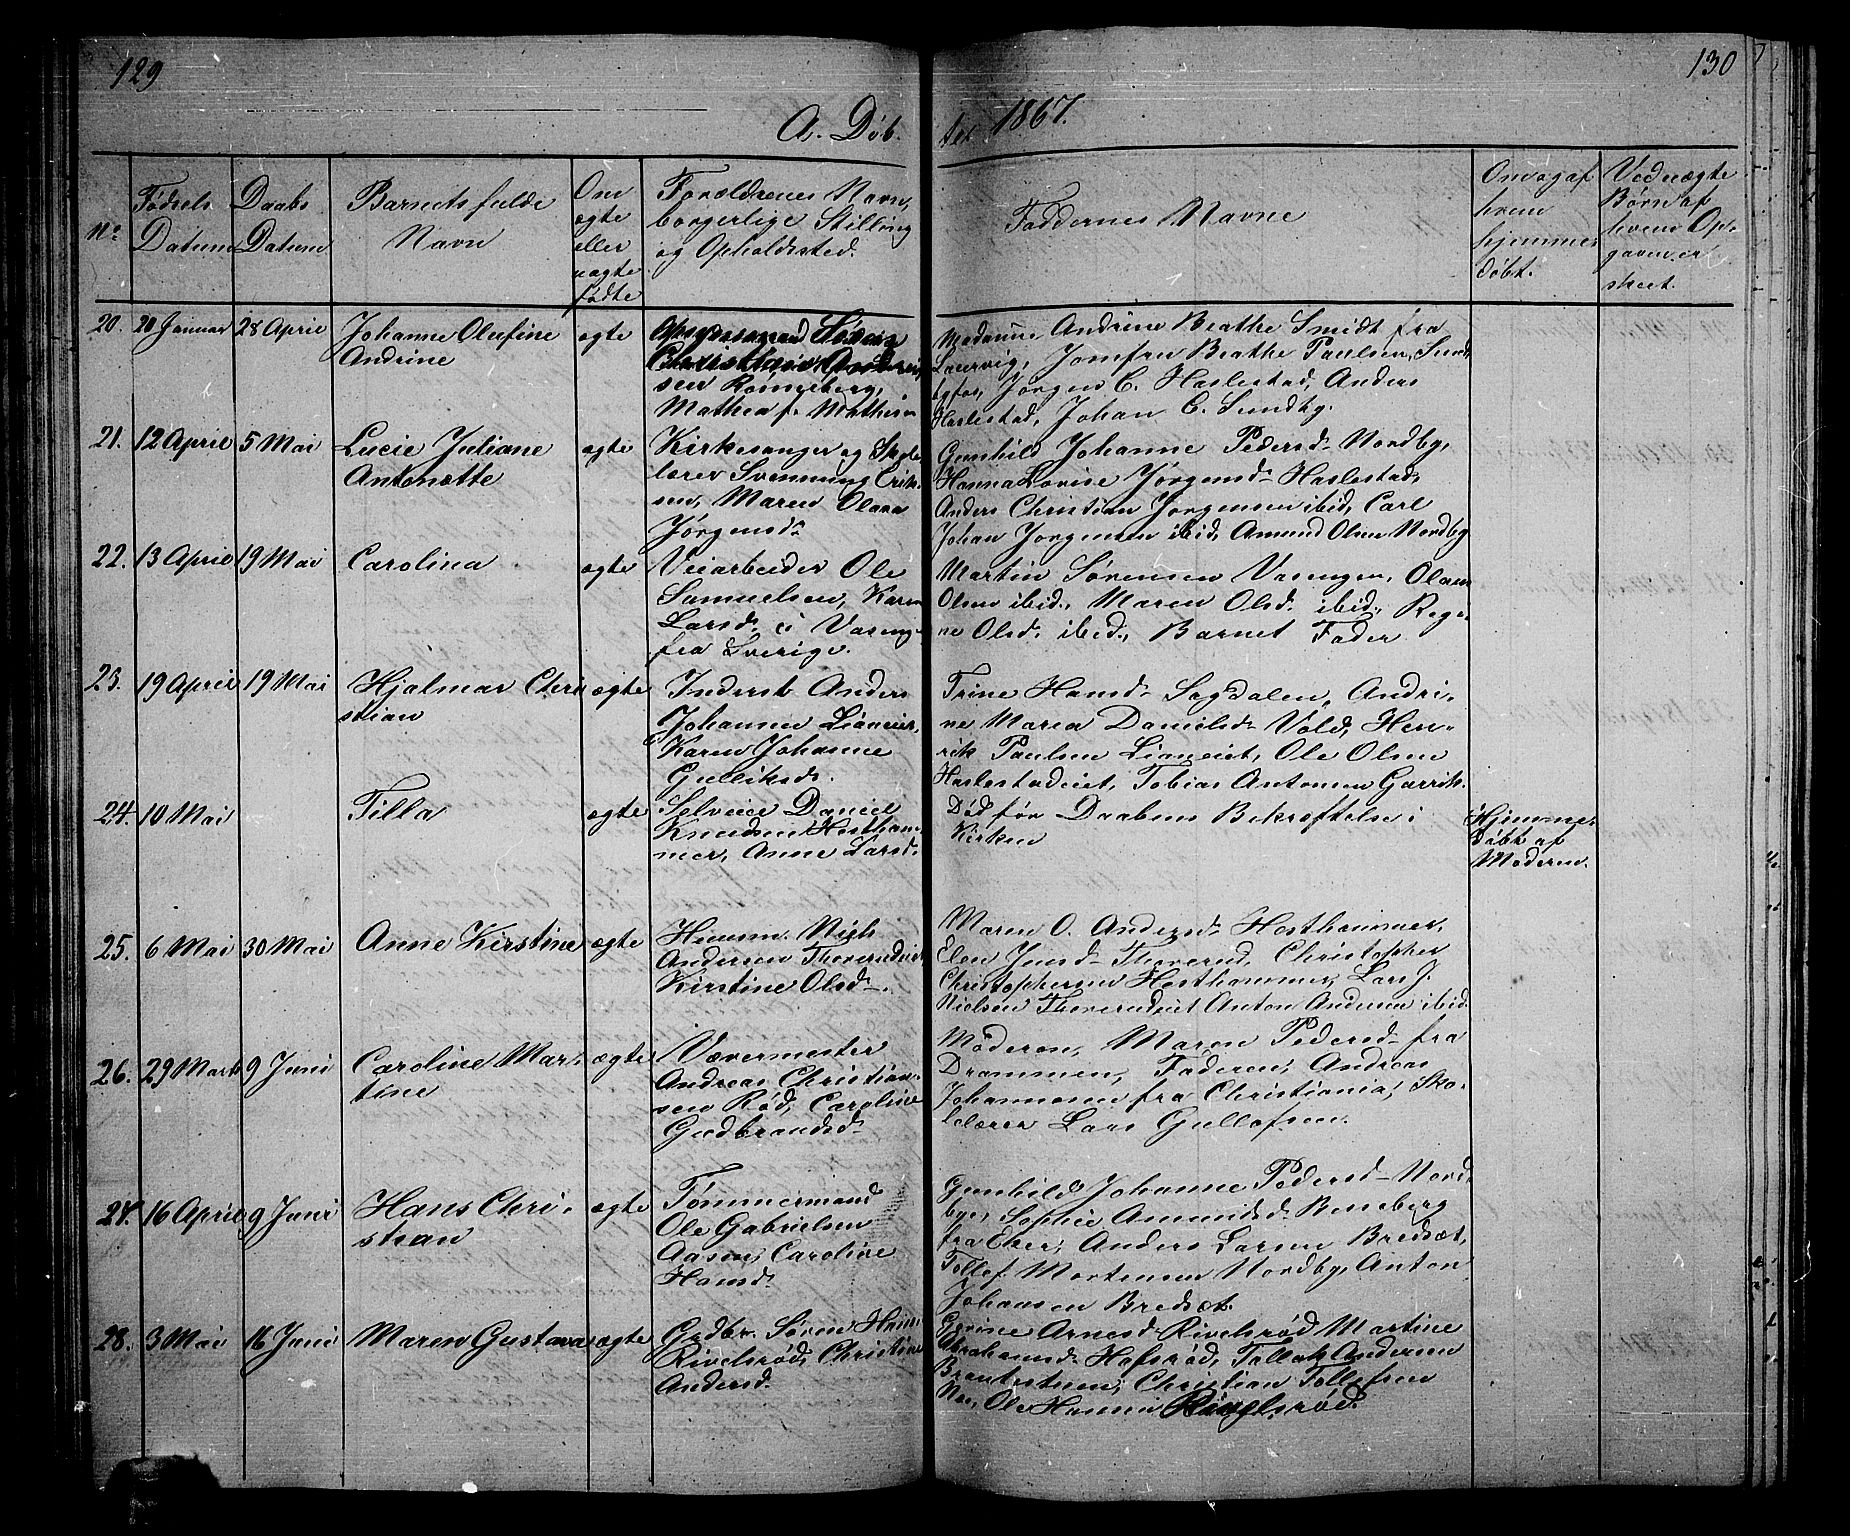 129
130
A. Døb-
te 1867.
No
Fødsels
Datum
Daabs
Datum
Barnets fulde
Navn
Om
ægte
eller
uægte
fødte
Forældrenes Navn,
borgerlige Stilling
og Opholdssted.
Faddernes Navne
Om og af
hvem
hjemme-
døbt.
Ved uægte
Børn af
hvem Op-
gaven er
skeet.
20. 20 Januar 28 April Johanne Olufine ægte
Andrine
Christian
sen Rønneberg,
Mathea f. Mathisen
Madame Andrine Beathe Smidt fra
Laurvig, Jomfru Beathe Paulsen, Sund
byfos, Jørgen C. Haslestad, Anders
Haslestad, Johan C. Sundby.
21. 12 April 5 Mai Lucie Juliane ægte
Antonette
Kirkesanger og Skole
lærer Svennung Erik-
sen, Maren Olava
Jørgensd.
Gunhild Johanne Pedersd. Nordby,
Hanna Lovise Jørgensd. Haslestad,
Anders Christian Jørgensen ibid, Carl
Johan Jørgensen ibid, Amund Olsen Nordby
22. 13 April 19 Mai Carolina ægte
Veiarbeider Ole
Samuelsen, Karen
Larsd. i Vareng
fra Sverige.
Martin Sørensen Vasengen, Olaus
Olsen ibid., Maren Olsd. ibid., Regi-
ne Olsd. ibid., Barnet Fader
23. 19 April 19 Mai Hjalmar Chri ægte
stian
Inderst Anders
Johannes Lianeiet,
Karen Johanne
Gulliksd.
Trine Hansd. Sagdalen, Andri-
ne Maria Danielsd. Vold, Hen-
rik Paulsen Lianeiet, Ole Olsen
Haslestadeiet, Tobias Antonsen
24. 10 Mai Tilla ægte
Selveier Daniel
Knudsen Hestham-
mer, Anne Larsd.
Død før Daabens Bekræftelse i
Kirken
Hjemme-
døbt af
Moderen.
25. 6 Mai 30 Mai Anne Kirstine ægte
Huusm. Niels
Andersen Thoverudeiet
Kirstine Olsd.
Maren O. Andersd. Hesthammer,
Elen Jensd. Thoverud, Christopher
Christophersen Hesthammer, Lars J.
Nielsen Thoverudeiet Anton Andersen ibid.
26. 29 Marts 9 Juni Caroline Mar- ægte
tine
Vævermester
Andreas Christian-
sen Rød, Caroline
Gudbrandsd.
Moderen, Maren Pedersd. fra
Drammen, Faderen, Andreas
Johannesen fra Christiania, Sko-
lelærer Lars Gullofsen.
27. 16 April 9 Juni Hans Chri- ægte
stian
Tømmermand
Ole Gabrielsen
Aasen, Caroline
Hansd.
Gunhild Johanne Pedersd. Nord
bye, Sophie Amundsd. Beneberg
fra Eker, Anders Larsen Bredsæt,
Tollef Mortensen Nordby, Anton
Johansen Bredsæt.
28. 3 Mai 16 Juni Maren Gustava ægte
Grdbr. Søren Hans
Rivelsrød, Christine
Andersd.
Gurine Arnesd. Rivelsrød Martine
Abrahamsd. Hafsrød, Tollef Andersen
Christian Tollefsen
Ole Hansen Rivelsrød.